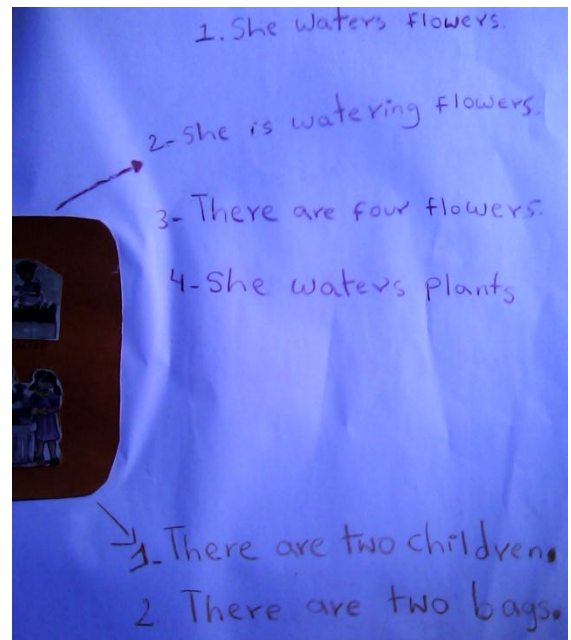 1. She waters flowers.
2- She is watering flowers.
3- There are four flowers.
4- She waters plants
1- There are two children.
2 There are two bags.